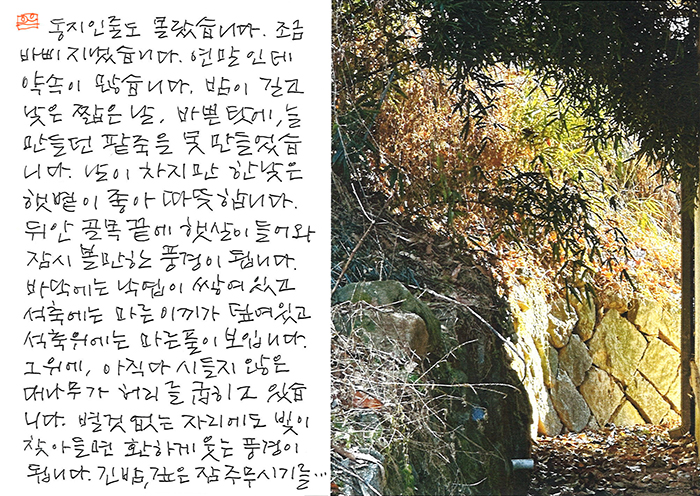 동지인줄도 몰랐습니다. 조금
바삐 지냈습니다. 연말인데
약속이 많습니다. 밤이 길고
낮은 짧은 날, 바쁜 탓에, 늘
만들던 팥죽을 못 만들었습
니다. 날이 차지만 한낮은
햇볕이 좋아 따뜻합니다.
뒤안 골목 끝에 햇살이 들어와
잠시 볼만한 풍경이 됩니다.
바닥에는 낙엽이 쌓여있고
석축에는 마른 이끼가 덮여있고
석축위에는 마른풀이 보입니다.
그위에, 아직 다 시들지 않은
대나무가 허리를 굽히고 있습
니다. 별것 없는 자리에도 빛이
찾아들면 환하게 웃는 풍경이
됩니다. 긴 밤, 깊은 잠 주무시기를…